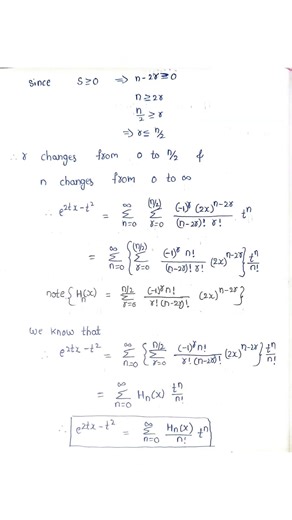 since S≥0 ⟹ n-2r≥0
n≥2r
n/2 ≥ r
⟹ r≤ n/2
∴ r changes from 0 to n/2 &
n changes from 0 to ∞
∴ e^{2tx-t²} = ∑_{n=0}^{∞} ∑_{r=0}^{(n/2)} (-1)^r (2x)^{n-2r} / (n-2r)! r! t^n
= ∑_{n=0}^{∞} { ∑_{r=0}^{(n/2)} (-1)^r n! / (n-2r)! r! (2x)^{n-2r} } t^n/n!
note { H_n(x) = ∑_{r=0}^{n/2} (-1)^r n! / r! (n-2r)! (2x)^{n-2r} }
we know that
∴ e^{2tx-t²} = ∑_{n=0}^{∞} { ∑_{r=0}^{n/2} (-1)^r n! / r! (n-2r)! (2x)^{n-2r} } t^n/n!
= ∑_{n=0}^{∞} H_n(x) t^n/n!
∴ e^{2tx-t²} = ∑_{n=0}^{∞} H_n(x)/n! t^n